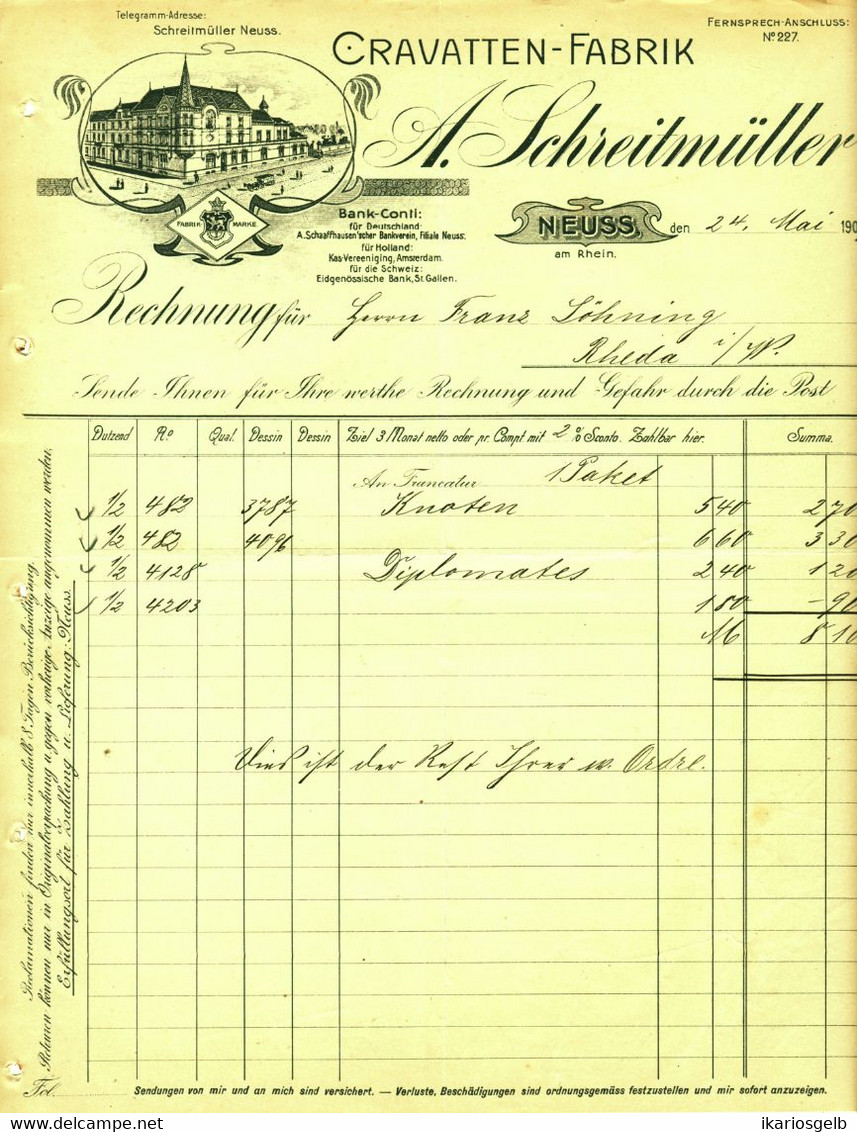 Telegramm-Adresse:
Schreitmüller Neuss.
FERNSPRECH-ANSCHLUSS:
No. 227.
CRAVATTEN-FABRIK
A. Schreitmüller
FABRIK MARKE
Bank-Conti:
für Deutschland:
A. Schaaffhausen'scher Bankverein, Filiale Neuss:
für Holland:
Kas-Vereeniging, Amsterdam.
für die Schweiz:
Eidgenössische Bank, St. Gallen.
NEUSS, den 24. Mai 190
am Rhein.
Rechnung für Herrn Franz Löhning
Rheda i/W.
Sende Ihnen für Ihre werthe Rechnung und Gefahr durch die Post
Dutzend No. Qual. Dessin Dessin Ziel 3 Monat netto oder pr. Compt mit 2 % Sconto. Zahlbar hier. Summa.
An Francatur 1 Paket
1/2 482 3787 Knoten 540 270
1/2 482 4096 660 330
1/2 4128 Diplomates 240 120
1/2 4203 180 -90
M 810
Dies ist der Rest Ihrer w. Ordre.
Reclamationen finden nur innerhalb 8 Tagen Berücksichtigung.
Retouren können nur in Originalverpackung u. gegen vorherige Anzeige angenommen werden.
Erfüllungsort für Zahlung u. Lieferung: Neuss.
Fol.
Sendungen von mir und an mich sind versichert. — Verluste, Beschädigungen sind ordnungsgemäss festzustellen und mir sofort anzuzeigen.
www.delcampe.net
ikariosgelb